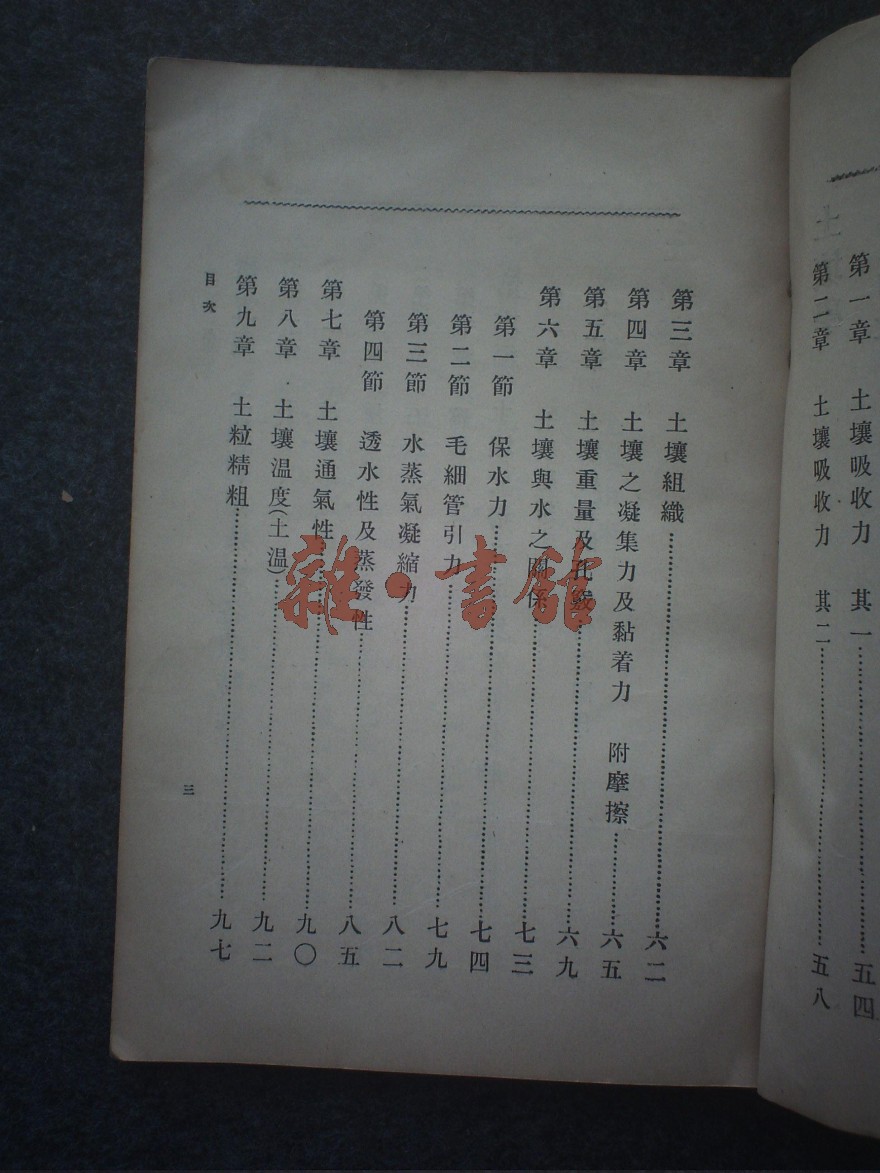 第一章 土壤吸收力 其一 五四
第二章 土壤吸收力 其二 五八
第三章 土壤組織 六二
第四章 土壤之凝集力及黏着力 附摩擦 六五
第五章 土壤重量及孔 六九
第六章 土壤與水之關係 七三
第一節 保水力 七四
第二節 毛細管引力 七九
第三節 水蒸氣凝縮力 八二
第四節 透水性及蒸發性 八五
第七章 土壤通氣性 九〇
第八章 土壤溫度(土溫) 九二
第九章 土粒精粗 九七
目次
三
雜·書館